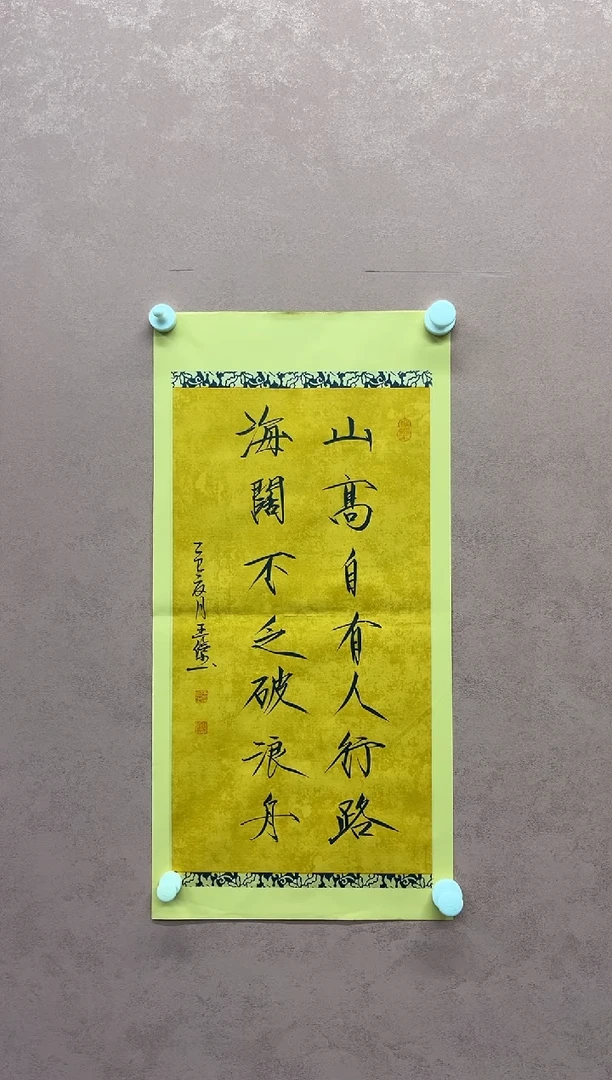 山高自有人行路
海闊不乏破浪舟
乙巳亥月王